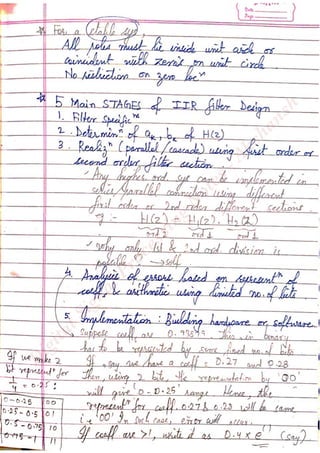 Date
Page
For a stable sys,
All poles must lie inside unit circle or
coincident with zeros on unit circle
No restriction on zero locn
5 Main STAGES of IIR filter Design
1. Filter specificns
2. Determinn of ak, bk of H(z)
3. Realizn (parallel / cascade) using first order or
second order filter section.
Any higher ord. sys can be implemented in
series/parallel connection using different
first order or 2nd order different sections.
H(z) = H1(z). H2(z)
ord 2 ord 1 ord 1
why only 1st & 2nd ord division is
possible? → self
4. Analysis of errors based on represent'n of
coeff. & arithmetic using limited no. of bits
5. Implementation: Building hardware or software
Suppose coeff. are 0.93599. This in binary
has to be represented by some fixed no. of bits
If we make 2
bit represent'n for
1/4 = 0.25:
If say we have a coeff = 0.27 and 0.28
Then, using 2 bits, the representation by '00'
will give 0-0.25 range. Hence, the
represent'n for coeff. 0.27 & 0.28 will be same
i.e. '00'. In such case, error will occur.
If coeff are >1, write it as 0.4 x e (say)
0-0.25 00
0.25-0.5 01
0.5-0.75 10
0.75-1 11